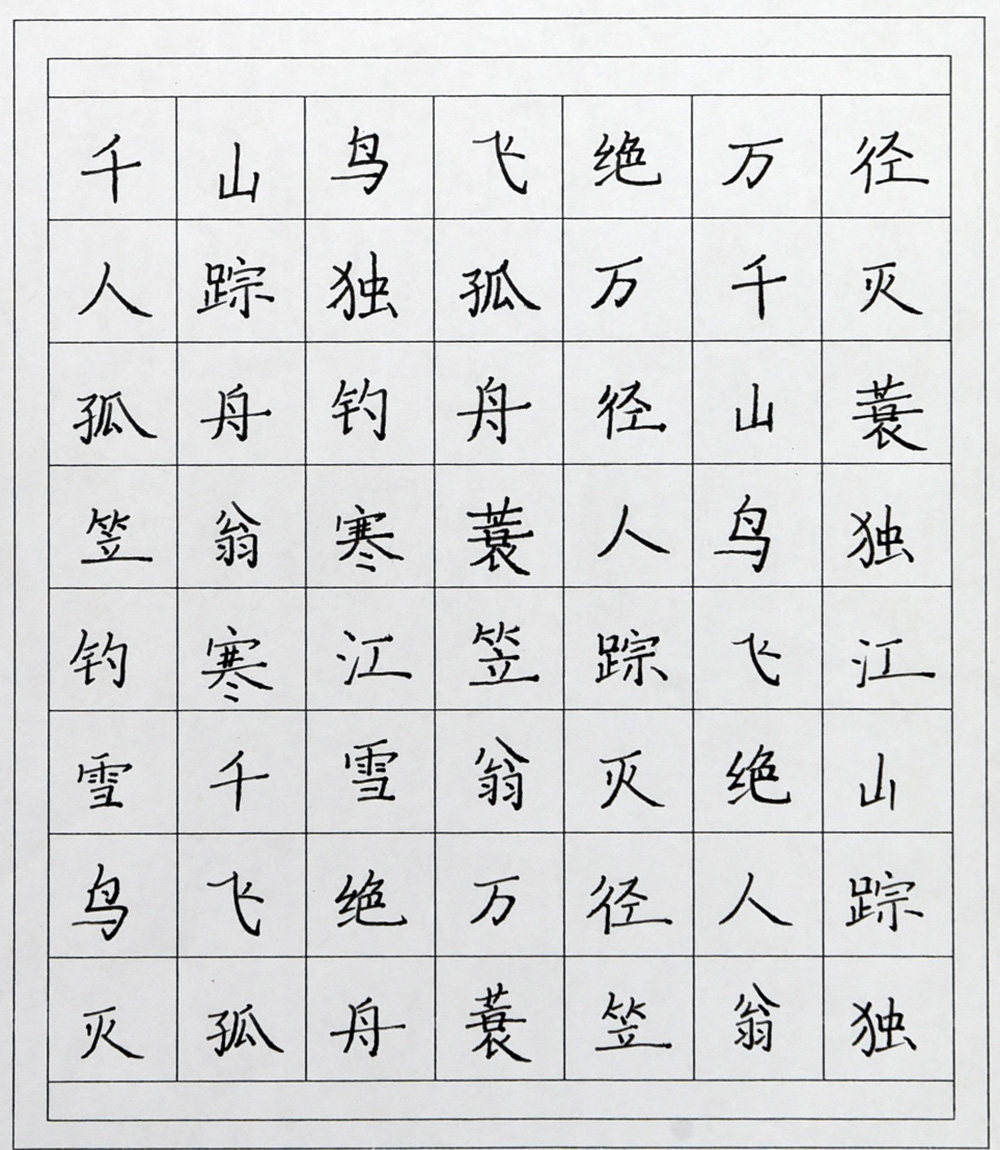 千山鸟飞绝万径
人踪独孤万千灭
孤舟钓舟径山蓑
笠翁寒蓑人鸟独
钓寒江笠踪飞江
雪千雪翁灭绝山
鸟飞绝万径人踪
灭孤舟蓑笠翁独